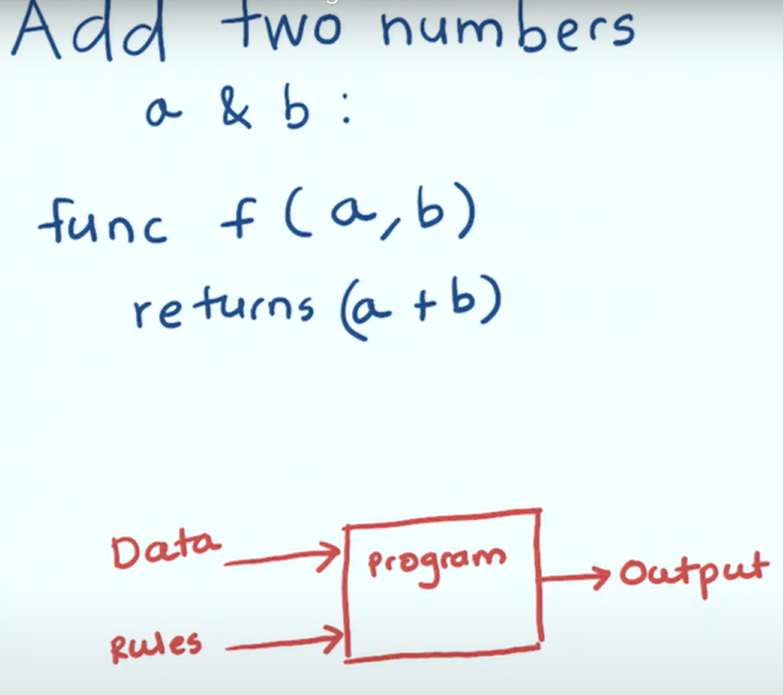 Add two numbers
a & b :
func f(a,b)
returns (a+b)
Data
Program
Output
Rules